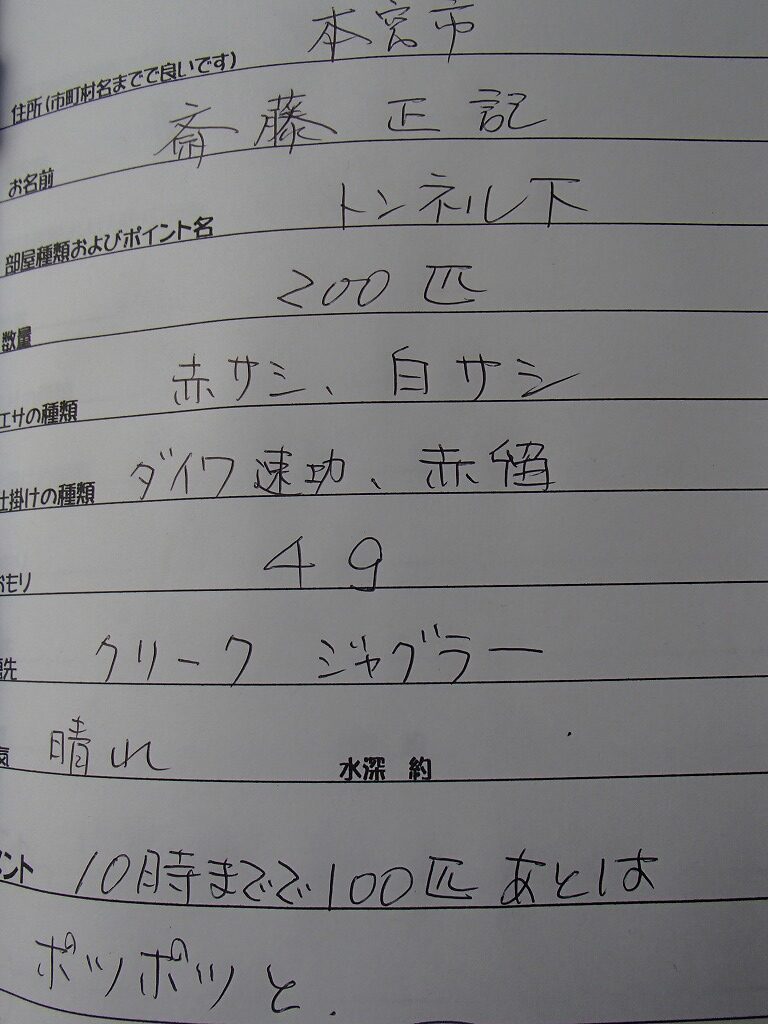 住所(市町村名までで良いです) 本宮市
お名前 斎藤 正記
部屋種類およびポイント名 トンネル下
数量 200匹
エサの種類 赤サシ、白サシ
仕掛けの種類 ダイワ速功、赤留
おもり 4g
穂先 クリーク ジャグラー
気 晴れ 水深 約
メント 10時までで100匹 あとは
ポツポツと.